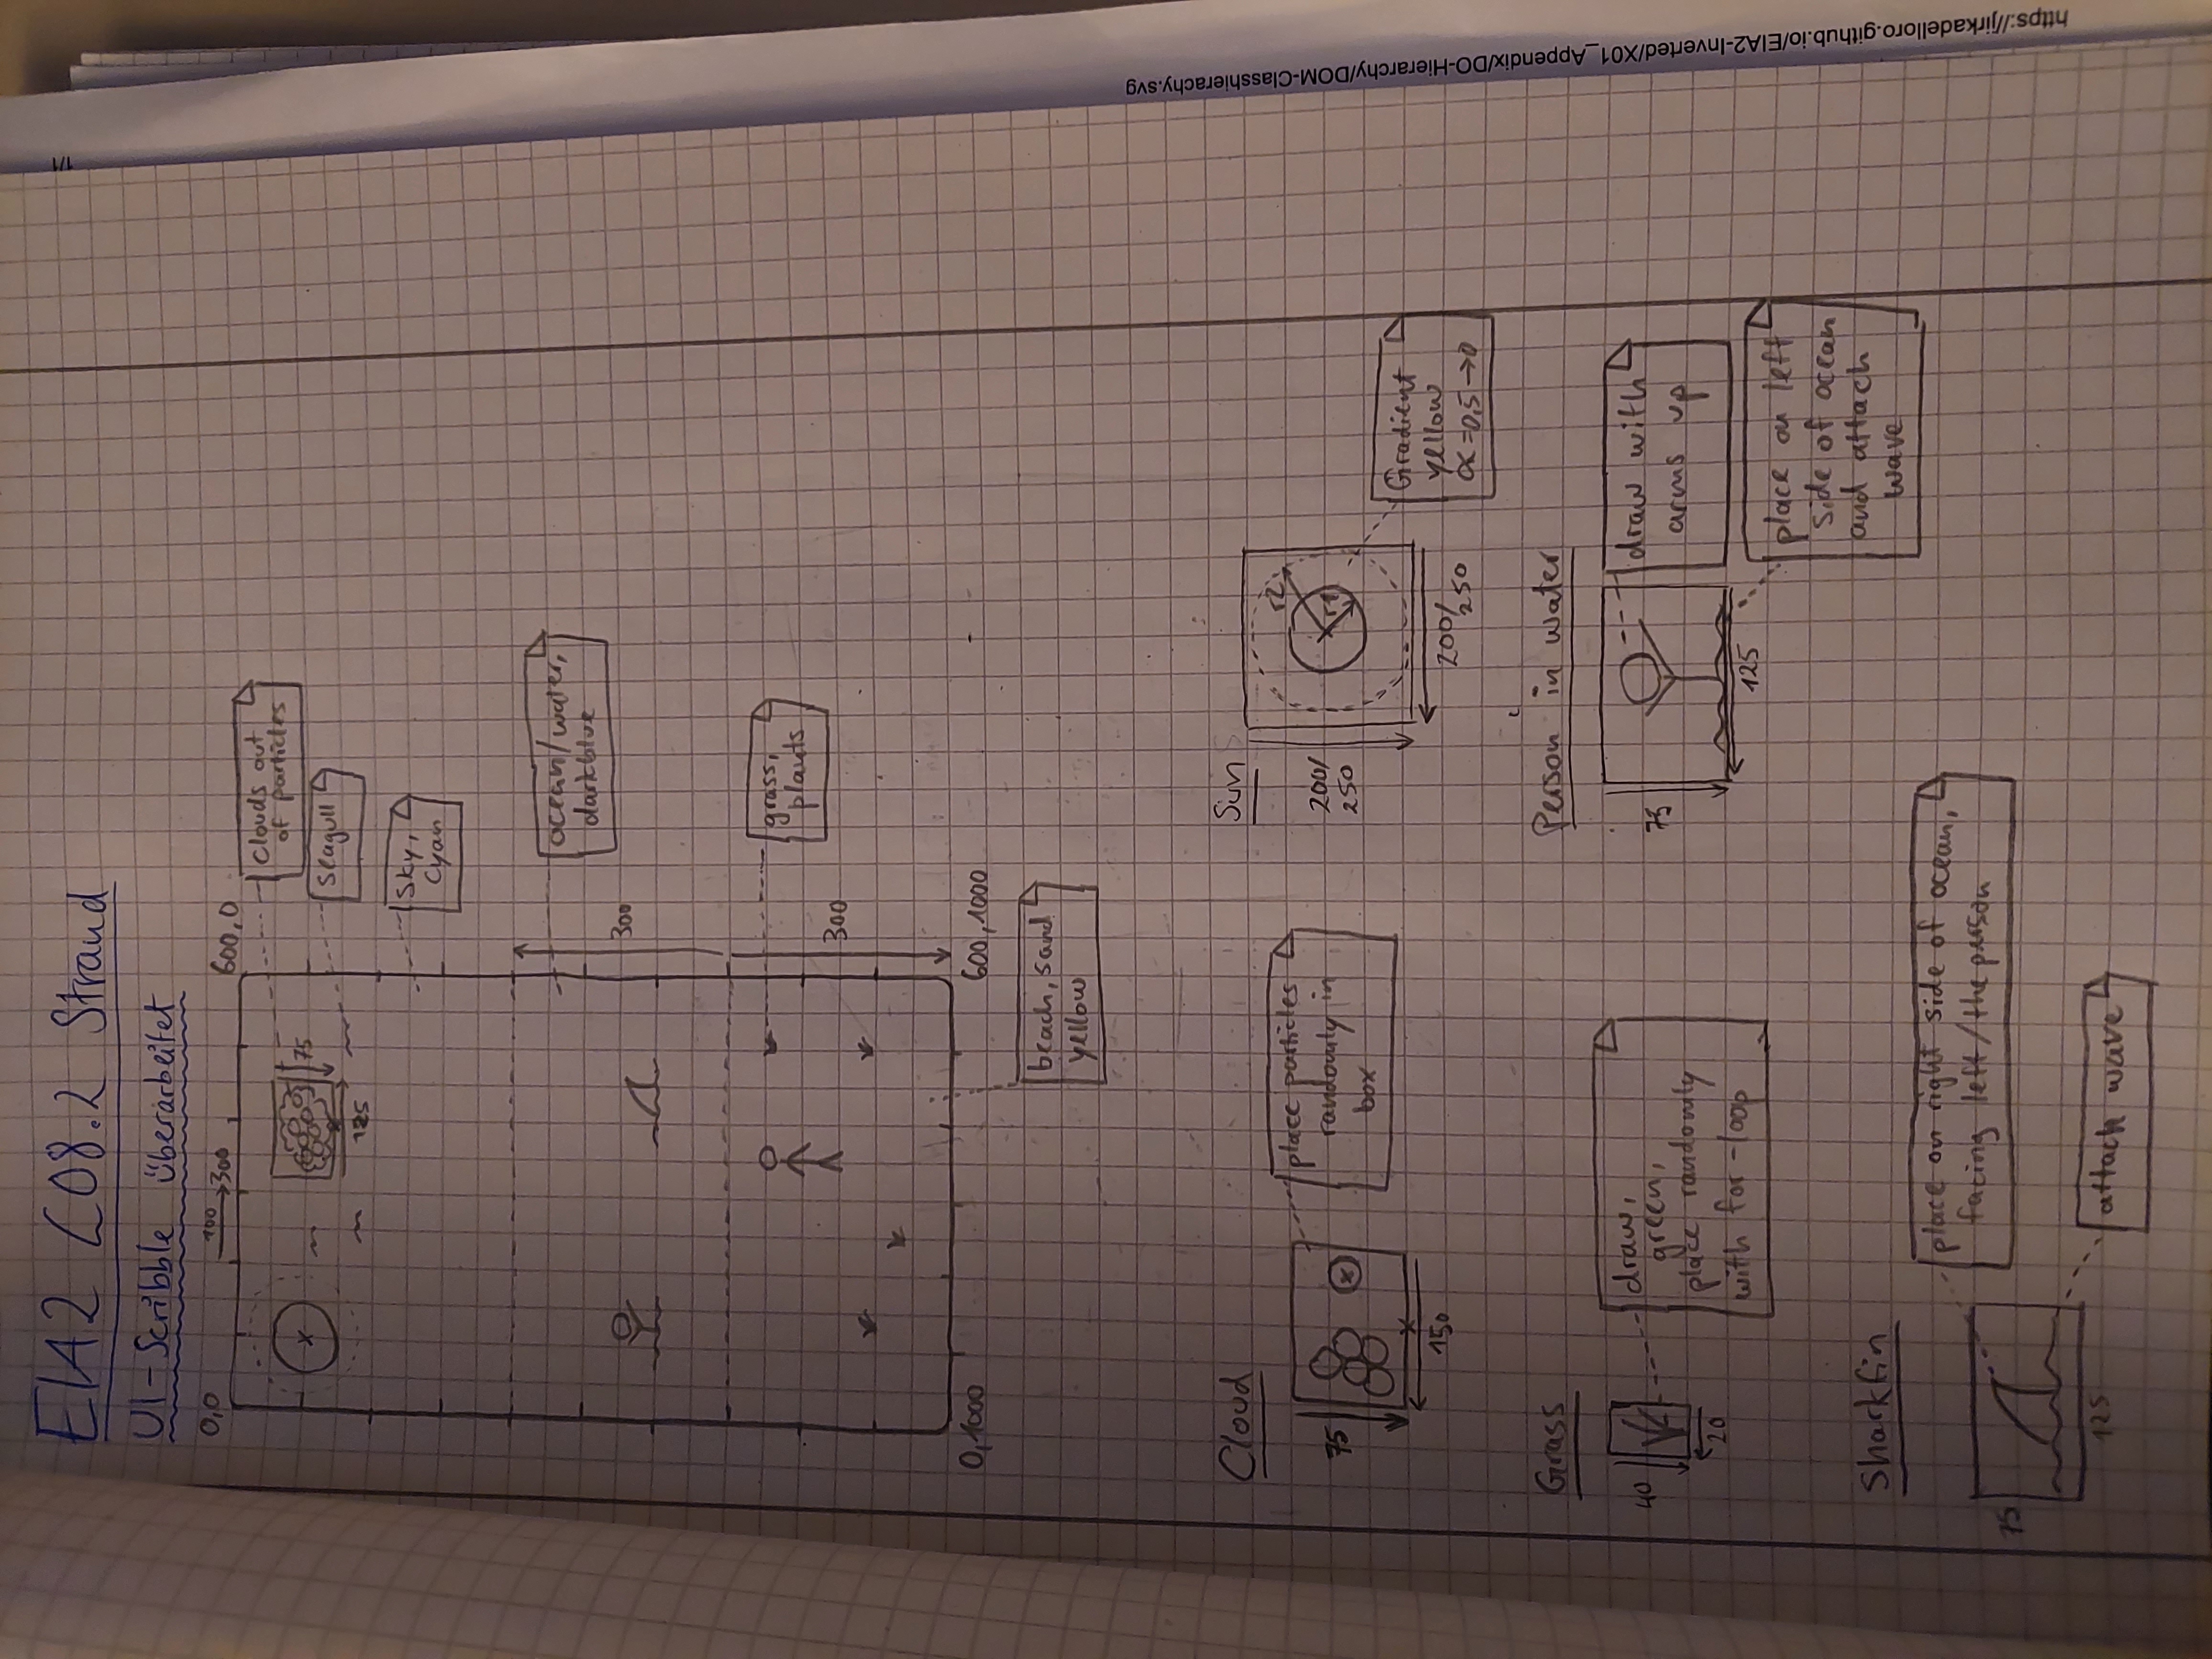 EIA2 L08.2 Strand
UI-Scribble überarbeitet
0,0
100
300
600,0
clouds out
of particles
75
125
seagull
sky,
cyan
ocean/water,
darkblue
300
grass,
plants
300
0,1000
600,1000
beach, sand
yellow
Cloud
75
150
place particles
randomly in
box
Sun
200/
250
r2
r1
200/
250
Gradient
yellow
α=0,5→0
Grass
40
20
draw,
green,
place randomly
with for-loop
Person in water
75
125
draw with
arms up
place on left
side of ocean
and attach
wave
Sharkfin
75
125
place on right side of ocean,
facing left/the person
attach wave
1/1
https://jirkadelloro.github.io/EIA2-Inverted/X01_Appendix/DO-Hierarchy/DOM-Classhierachy.svg